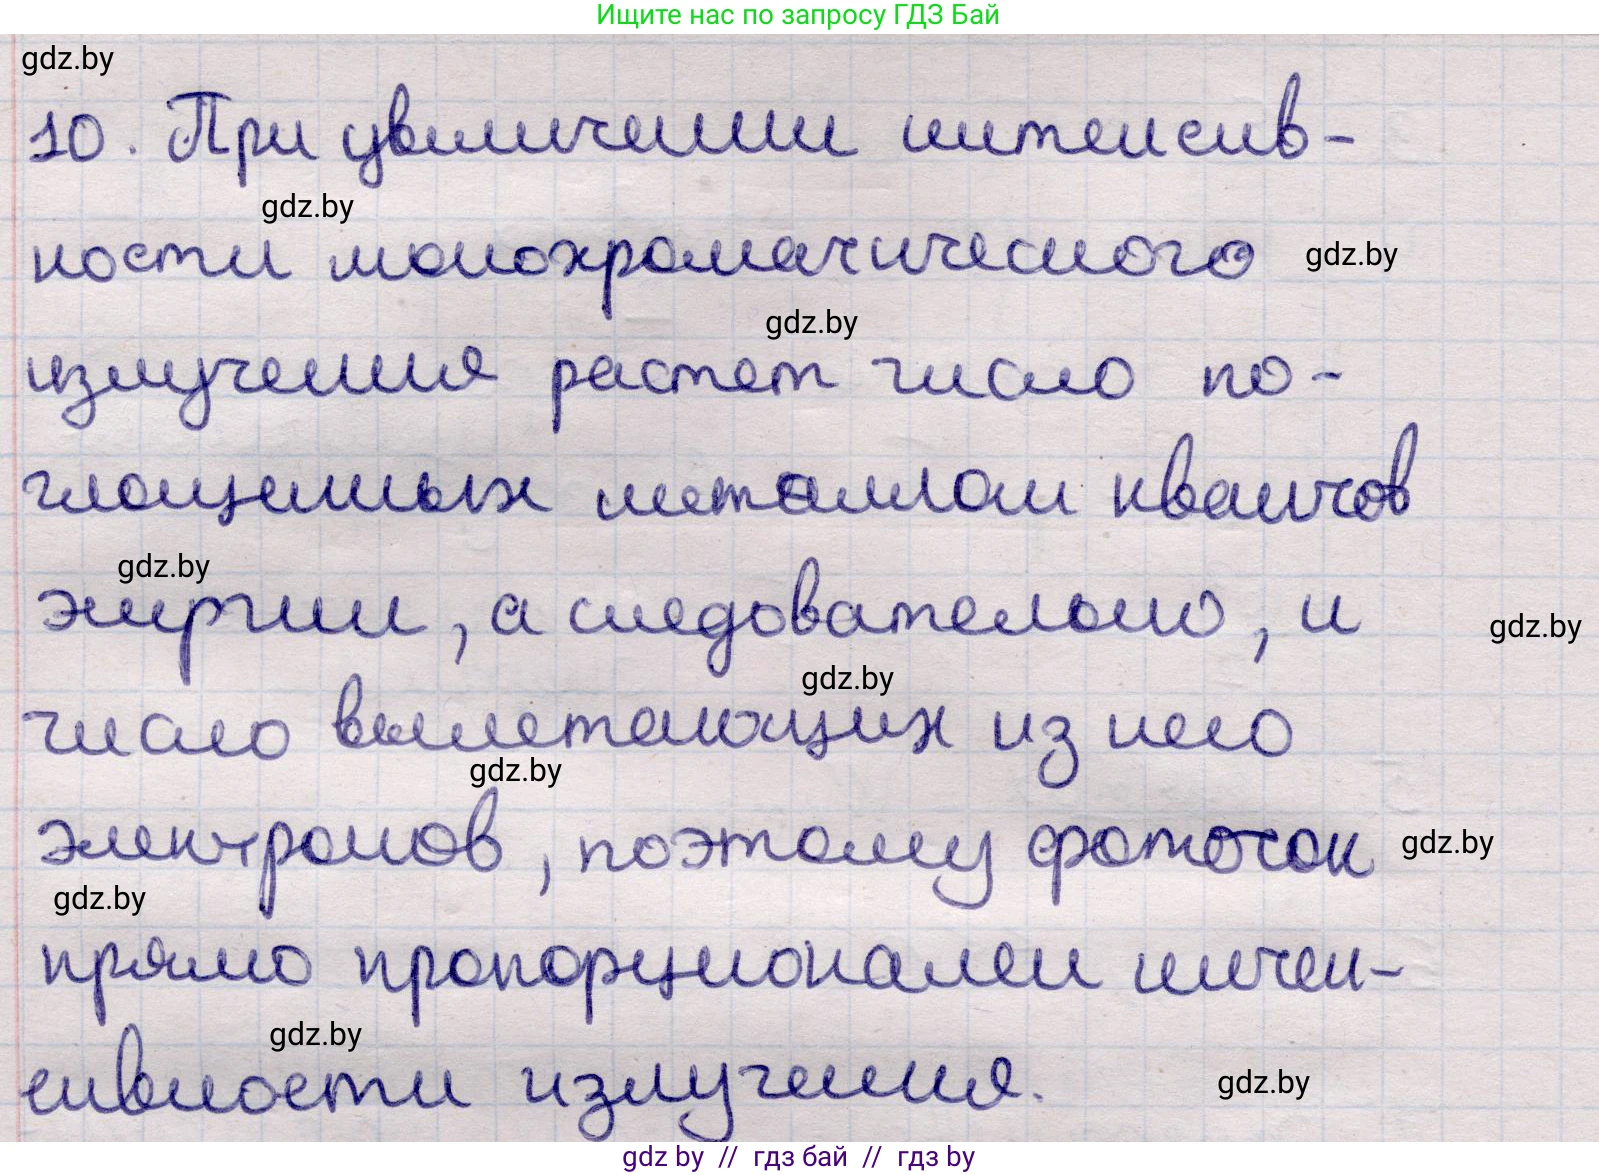 Ищите нас по запросу ГДЗ Бай
gdz.by
10. При увеличении интенсив-
gdz.by
ности монохроматического
gdz.by
gdz.by
излучения растет число по-
глощенных металлом квантов
gdz.by
энергии, а следовательно, и
gdz.by
gdz.by
число вылетающих из него
gdz.by
электронов, поэтому фототок
gdz.by
gdz.by
прямо пропорционален интен-
gdz.by
сивности излучения.
gdz.by
gdz by // гдз бай // гдз by